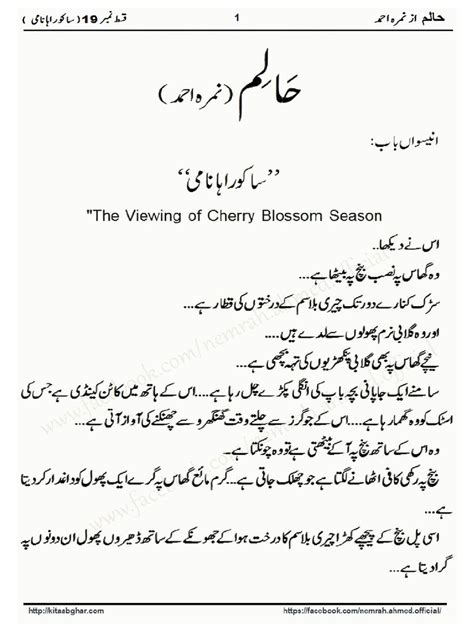 حالم از نمرہ احمد 1 قسط نمبر 19 (ساکورا ہانامی)
حَالِم (نمرہ احمد)
انیسواں باب:
”ساکورا ہانامی“
"The Viewing of Cherry Blossom Season
اس نے دیکھا..
وہ گھاس پہ نصب بنچ پہ بیٹھا ہے...
سڑک کنارے دور تک چیری بلاسم کے درختوں کی قطار ہے...
اور وہ گلابی نرم پھولوں سے لدے ہیں....
نیچے گھاس پہ بھی گلابی پنکھڑیوں کی تہہ بچھی ہے...
سامنے ایک جاپانی بچہ باپ کی انگلی پکڑے چل رہا ہے.... اس کے ہاتھ میں کاٹن کینڈی ہے جس کی
اسٹک کو وہ گھما رہا ہے.... اس کے جوگرز سے چلتے وقت گھنگھرو سے چھنکنے کی آواز آتی ہے...
وہ اس کے ساتھ بنچ پہ آ کے بیٹھتی ہے تو وہ چونکتا ہے..
بنچ پہ رکھی کافی اٹھانے لگتا ہے جو چھلک جاتی ہے... گرم مائع گھاس پہ گرے ایک پھول کو داغدار کر دیتا
ہے...
اسی پل بنچ کے پیچھے کھڑا چیری بلاسم کا درخت ہوا کے جھونکے کے ساتھ ڈھیروں پھول ان دونوں پہ
گرا دیتا ہے...
www.facebook.com/nemrah.ahmed.official
http://kitaabghar.com https://facebook.com/nemrah.ahmed.official/